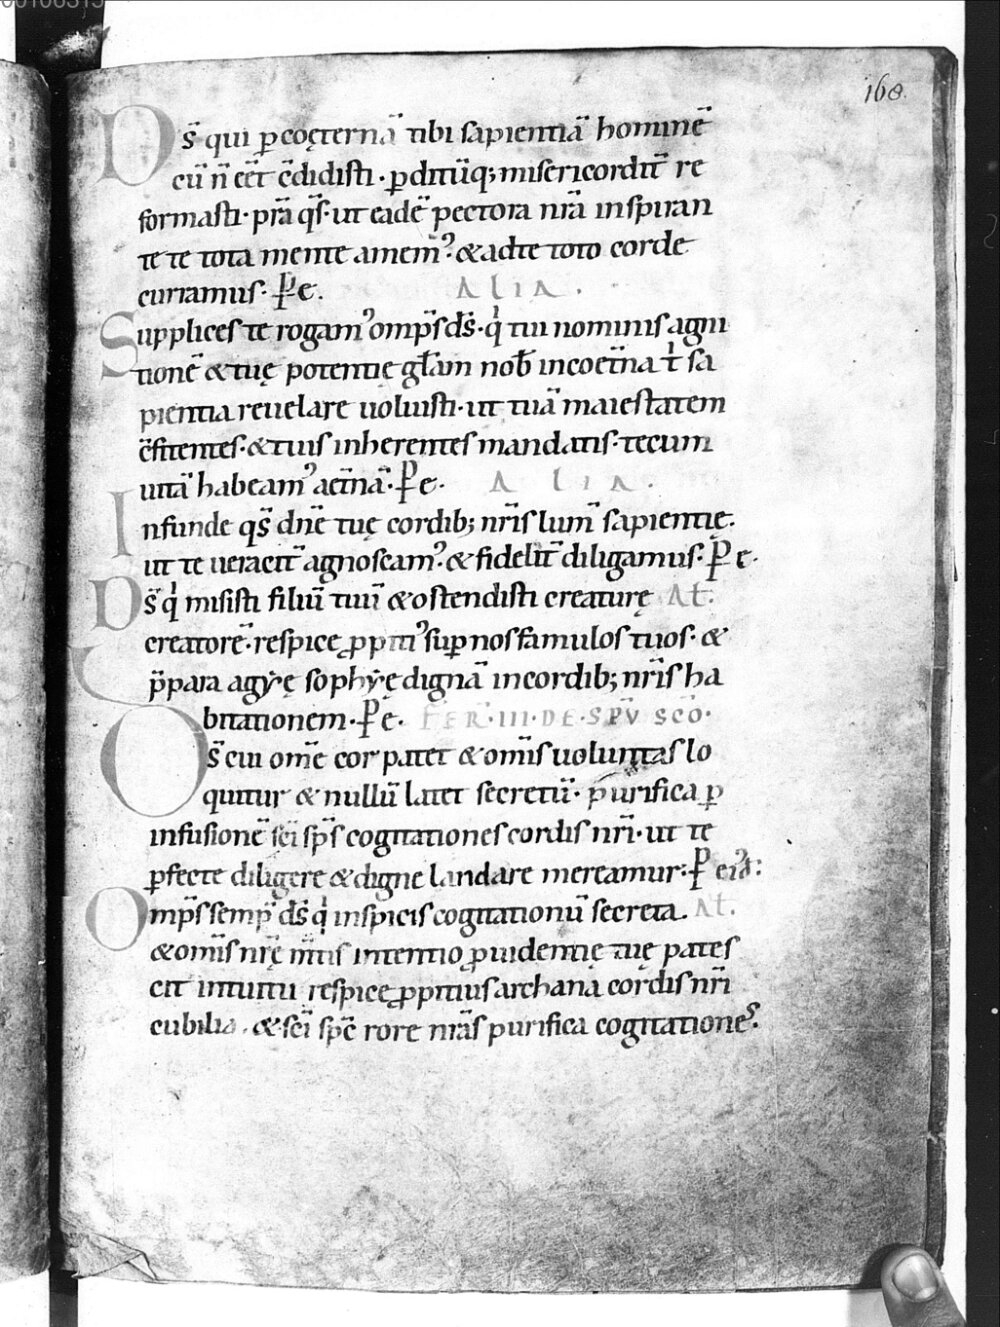 00106315
168.
Ds̄ qui ꝑ coęternā tibi sapientiā hominē
cū n̄ eēt c̄didisti · ꝑditūq; misericordit̄ re
formasti · prā qs̄ · ut eadē pectora nrā inspiran
te te tota mente amem᾿ & ad te toto corde
curramus · P̄e. ALIA.
Supplices te rogam᾿ omps̄ ds̄ · qͥ tui nominis agni
tionē & tuę potentię gl̄am nob̄ incoet̄na tͥ sa
pientia reuelare uoluisti · ut tuā maiestatem
c̄fitentes · & tuis inherentes mandatis · tecum
uitā habeam᾿ aet̄nā · P̄e · ALIA.
Infunde qs̄ dnē tuę cordib; nrīs lum̄ sapientię.
ut te ueracit̄ agnoscam᾿ & fidelit̄ diligamus · P̄e ·
Ds̄ qͥ misisti filiū tuū & ostendisti creaturę Al̄:
creatorē · respice ꝓpiti᾿ suꝑ nos famulos tuos · &
p̄para agyę sophyę dignā in cordib; nrīs ha
bitationem · P̄e · FER · III · DE · SP̄U SCO ·
Ds̄ cui om̄e cor patet & om̄is uoluntas lo
quitur & nullū latet secretū · purifica ꝑ
infusionē sc̄i sp̄s cogitationes cordis nrī · ut te
ꝑfecte diligere & digne laudare mereamur · P
Omps̄ semp̄ ds̄ qͥ inspicis cogitationū secreta. Al̄.
& om̄is nrę̄ m̄tis intentio ꝓuidentię tuę pates
cit intuitu respice ꝓpitius archana cordis nrī
cubilia · & sc̄i sp̄c rore nrās purifica cogitationes ·